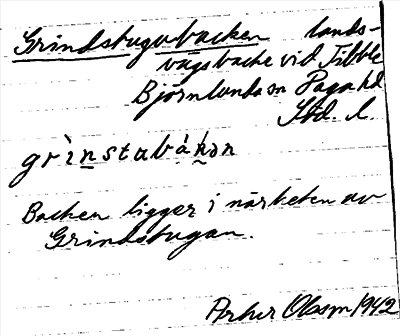 Grindstugubacken lands-
vägsbacke vid Tibble
Björnlunda sn Daga hd
Söd. l.
grìnstabákən
Backen ligger i närheten av
Grindstugan.
Olsson 1942